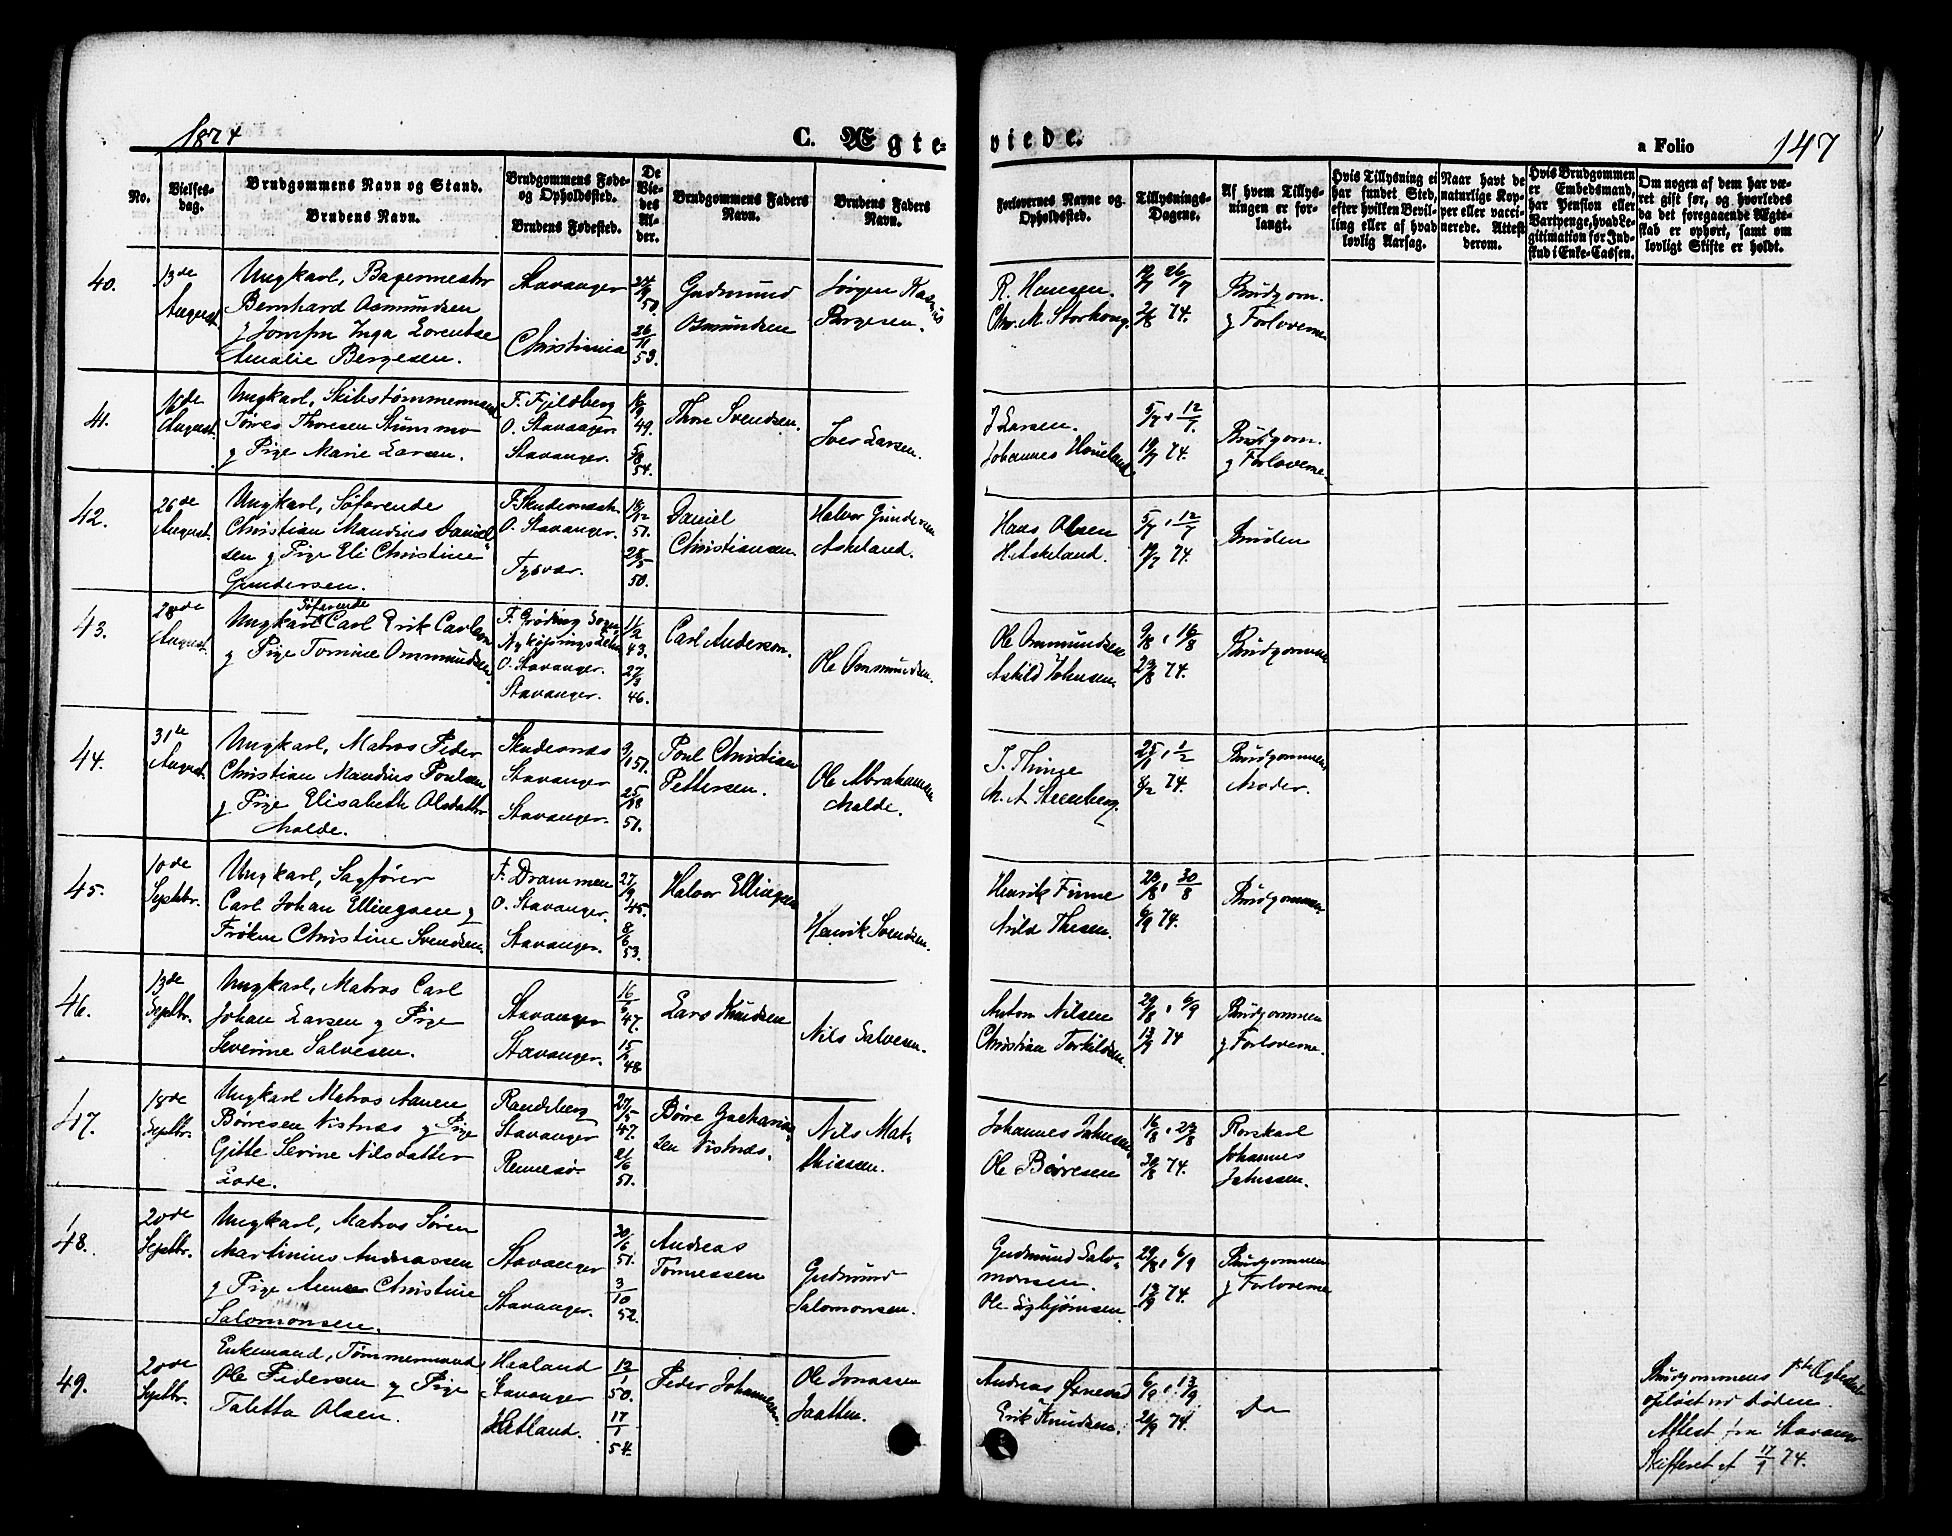 1874
C. Ægte-
viede.
a Folio 147
No.
Vielses-
dag.
Brudgommens Navn og Stand.
Brudens Navn.
Brudgommens Føde-
og Opholdssted.
Brudens Fødested.
De
Vie-
des
Al-
der.
Brudgommens Faders
Navn.
Brudens Faders
Navn.
Forlovernes Navne og
Opholdssted.
Tillysnings-
Dagene.
Af hvem Tillys-
ningen er for-
langt.
Hvis Tillysning ei
har fundet Sted,
efter hvilken Bevil-
ling eller af hvad
lovlig Aarsag.
Naar havt de
naturlige Kop-
per eller vacci-
nerede. Attest
derom.
Hvis Brudgommen
er Embedsmand,
har Pension eller
Vartpenge, hvad Le-
gitimation for Ind-
skud i Enke-Cassen.
Om nogen af dem har væ-
ret gift før, og hvorledes
da det foregaaende Ægte-
skab er ophørt, samt om
lovligt Skifte er holdt.
40.
13de
August.
Ungkarl, Bagermester
Bernhard Asmundsen
Inga Lorentze
Amalie Bergesen.
Stavanger
Christiania
24/9
50.
26/11
53.
Gudmund
Osmundsen
Jørgen
Bergesen.
R. Hansen.
Chr. M. Storhoug.
19/7 26/7
2/8 74.
Brudgom.
g Forloverne
41.
16de
August.
Ungkarl, Skibstømmermand
Tøres Thoresen Stummo
g Pige Marie Larsen.
F. Fjeldberg
O. Stavanger.
Stavanger.
16/9
49.
5/8
54.
Thore Svendsen.
Iver Larsen.
J Larsen.
Johannes Houeland
5/7, 12/7.
19/7 74.
Brudgom.
g Forloverne
42.
26de
August.
Ungkarl, Søfarende
Christian Mandius Daniel
sen g Pige Eli Christine
Gundersen.
F. Skudesnæsh.
O. Stavanger.
Tysvær.
19/12
51.
28/5
50.
Daniel
Christiansen.
Halvor Gundersen
Askeland.
Hans Olsen
H. Askeland.
5/7, 12/7
19/7 74.
Bruden
43.
28de
August.
Søfarende
Ungkarl Carl Erik Carlsen
g Pige Tomine Ommundsen.
F. Grøding Sogn
Nykjøpings Lehn
O. Stavanger.
Stavanger.
11/2
43.
27/3
46.
Carl Anderson.
Ole Ommundsen.
Ole Ommundsen
Askild Johnsen.
9/8, 16/8
23/8 74.
Brudgommen
44.
31te
August.
Ungkarl, Matros Peder
Christian Mandius Poulsen
g Pige Elisabeth Olsdatter
Malde.
Skudesnæs
Stavanger
Stavanger.
9/1 51.
25/8
51.
Poul Christian
Pettersen.
Ole Abrahamsen
Malde.
T. Thime
M. A. Steenberg.
25/1, 1/2
8/2 74.
Brudgommens
Moder.
45.
10de
Septbr.
Ungkarl, Sagfører
Carl Johan Ellingsen g
Frøken Christine Svendsen.
F. Drammen
O. Stavanger.
Stavanger.
27/9
45.
8/6
53.
Halvor Ellingsen
Henrik Svendsen.
Henrik Finne
Arild Thesen.
23/8, 30/8
6/9 74.
Brudgommen
46.
13de
Septbr.
Ungkarl, Matros Carl
Johan Larsen g Pige
Severine Salvesen.
Stavanger
Stavanger.
47.
15/2
48
Lars Knudsen
Nils Salvesen.
Anton Nilsen
Christian Torkildsen.
29/8, 6/9
13/9 74
Brudgommen
g Forloverne.
47.
18de
Septbr.
Ungkarl Matros Aanen
Børresen Vistnæs g Pige
Gitte Serine Nilsdatter
Lode.
Randeberg
Stavanger
Rennesø.
27/5
47.
21/6
51.
Børre Zacharia-
sen Vistnæs.
Nils Mat-
thissen.
Johannes Johnsen
Ole Børresen
16/8, 23/8
30/8 74.
Rorskarl
Johannes
Johnsen.
48.
20de
Septbr.
Ungkarl, Matros Søren
Martinius Andreassen
g Pige Anne Christine
Salomonsen.
Stavanger
Stavanger.
30/6
51.
3/10
52.
Andreas
Tønnessen
Gudmund
Salomonsen.
Gudmund Salo-
monsen
Ole Sigbjørnsen.
29/8, 6/9
13/9 74.
Brudgommen
g Forloverne
49.
20de
Septbr.
Enkemand, Tømmermand
Ole Pedersen g Pige
Taletta Olsen.
Haaland
Stavanger
Hetland.
12/1
50.
17/1
54.
Peder Johannesen.
Ole Jonassen
Jaatten.
Andreas
Erik Knudsen.
6/9, 13/9
20/9 74.
Do
Brudgommens 1ste Ægteskab
opløst ved Døden.
Attest fra Stavanger
Skifteret af 17/9 74.